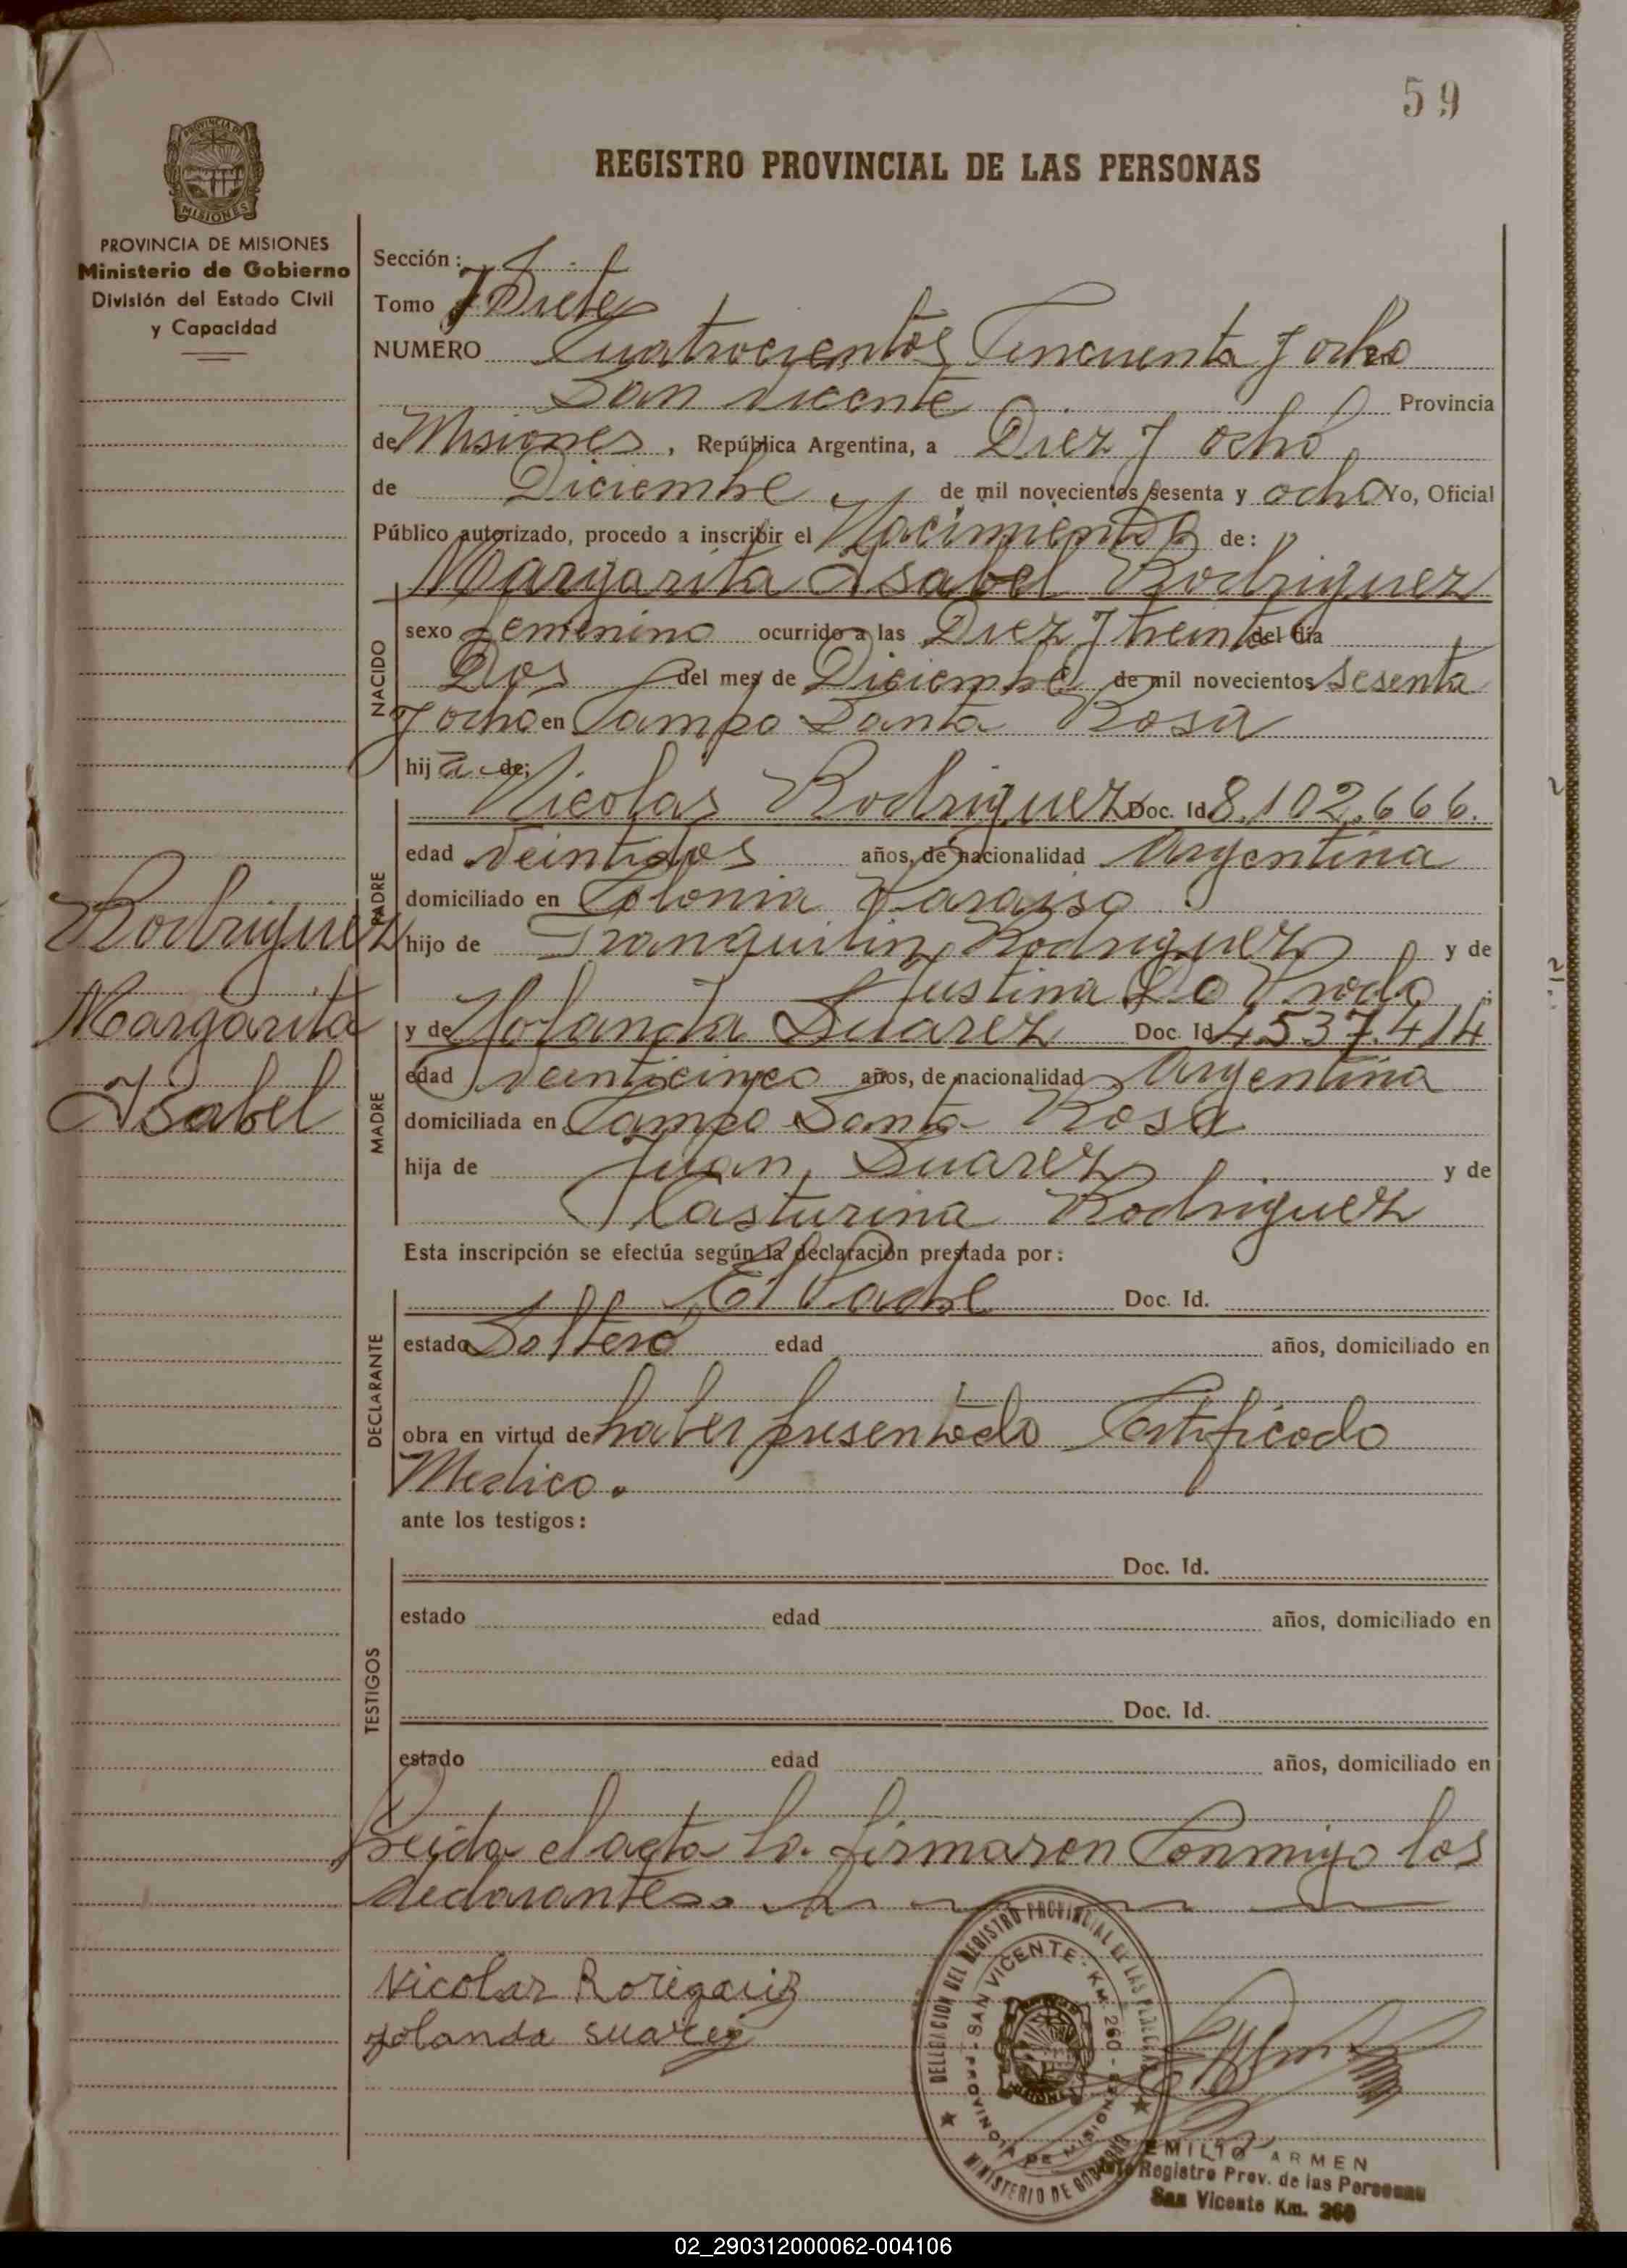 59
PROVINCIA DE MISIONES
REGISTRO PROVINCIAL DE LAS PERSONAS
PROVINCIA DE MISIONES
Ministerio de Gobierno
División del Estado Civil
y Capacidad
Sección:
Tomo 7 Siete
NUMERO Cuatrocientos Cincuenta y ocho
San Vicente Provincia
de Misiones, República Argentina, a Diez y ocho
de Diciembre de mil novecientos sesenta y ocho Yo, Oficial
Público autorizado, procedo a inscribir el Nacimiento de:
Margarita Isabel Rodriguez
NACIDO
sexo femenino ocurrido a las Diez y treinta del día
Dos del mes de Diciembre de mil novecientos Sesenta
y ocho en Campo Santa Rosa
hija de:
PADRE
Nicolas Rodriguez Doc. Id 8.102.666.
edad Veintidos años, de nacionalidad Argentina
domiciliado en Colonia Paraiso
Rodriguez
Margarita
Isabel
hijo de Tranquilino Rodriguez y de
Justina Do Prado;
MADRE
y de Yolanda Suarez Doc. Id 4.537.414
edad veinticinco años, de nacionalidad Argentina
domiciliada en Campo Santa Rosa
hija de Juan Suarez y de
Casturina Rodriguez
Esta inscripción se efectúa según la declaración prestada por:
DECLARANTE
El Padre Doc. Id.
estado Soltero edad años, domiciliado en
obra en virtud de haber presentado Certificado
Medico.
ante los testigos:
TESTIGOS
Doc. Id.
estado edad años, domiciliado en
Doc. Id.
estado edad años, domiciliado en
Leida el acta la firmaron Conmigo los
declarantes.
Nicolas Rorigaiz
Yolanda suarez
DELEGACION DEL REGISTRO PROVINCIAL DE LAS PERSONAS
SAN VICENTE - KM. 260 -
PROVINCIA DE MISIONES
MINISTERIO DE GOBIERNO
EMILIO ARMEN
Registro Prov. de las Personas
San Vicente Km. 260
02_290312000062-004106